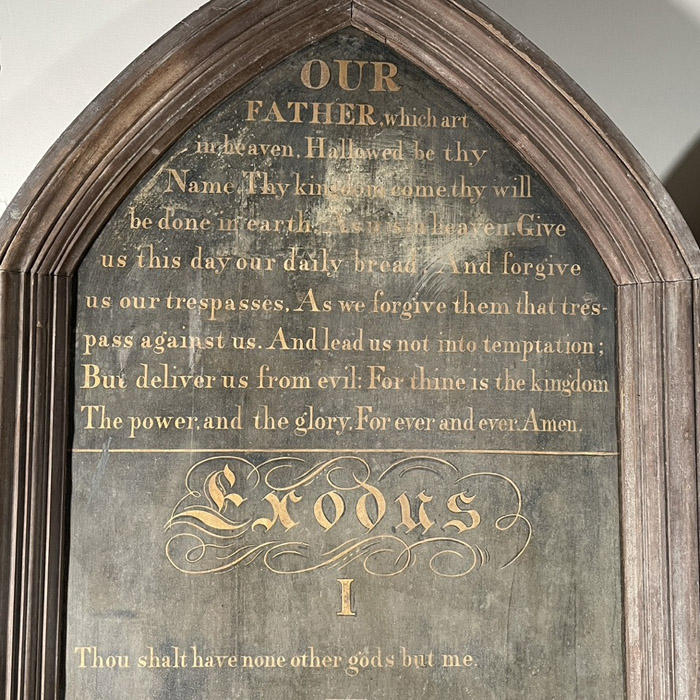 OUR
FATHER, which art
in heaven. Hallowed be thy
Name. Thy kingdom come thy will
be done in earth, As it is in heaven. Give
us this day our daily bread And forgive
us our trespasses, As we forgive them that tres-
pass against us. And lead us not into temptation;
But deliver us from evil: For thine is the kingdom
The power, and the glory, For ever and ever. Amen.
Exodus
I
Thou shalt have none other gods but me.